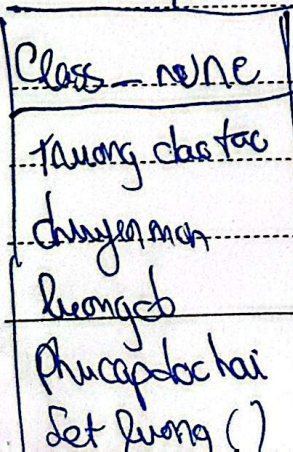 Class_nvnc
truongdaotao
chuyenmon
luongcb
phucapdochai
Set luong ()